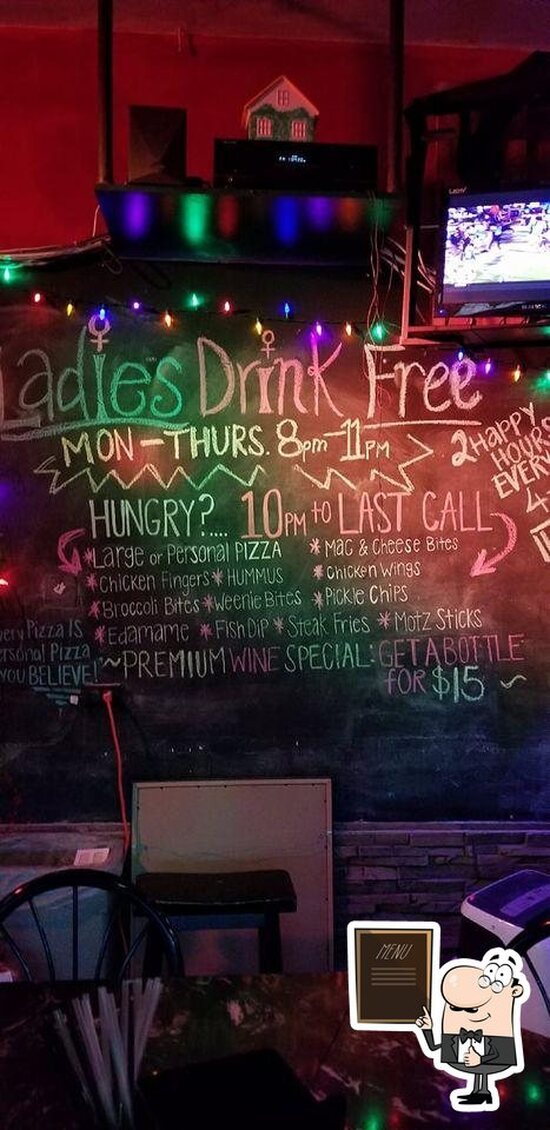 Ladies Drink Free
MON-THURS. 8pm-11PM
2 HAPPY
HOURS
EVERY
4
HUNGRY?.... 10PM to LAST CALL
*Large or Personal PIZZA
*Mac & Cheese Bites
*Chicken Fingers *HUMMUS
*Chicken Wings
*Broccoli Bites *Weenie Bites
*Pickle Chips
*Edamame *Fish Dip *Steak Fries *Motz Sticks
very Pizza IS
ersonal Pizza
YOU BELIEVE!
~PREMIUM WINE SPECIAL: GET A BOTTLE
FOR $15 ~
MENU